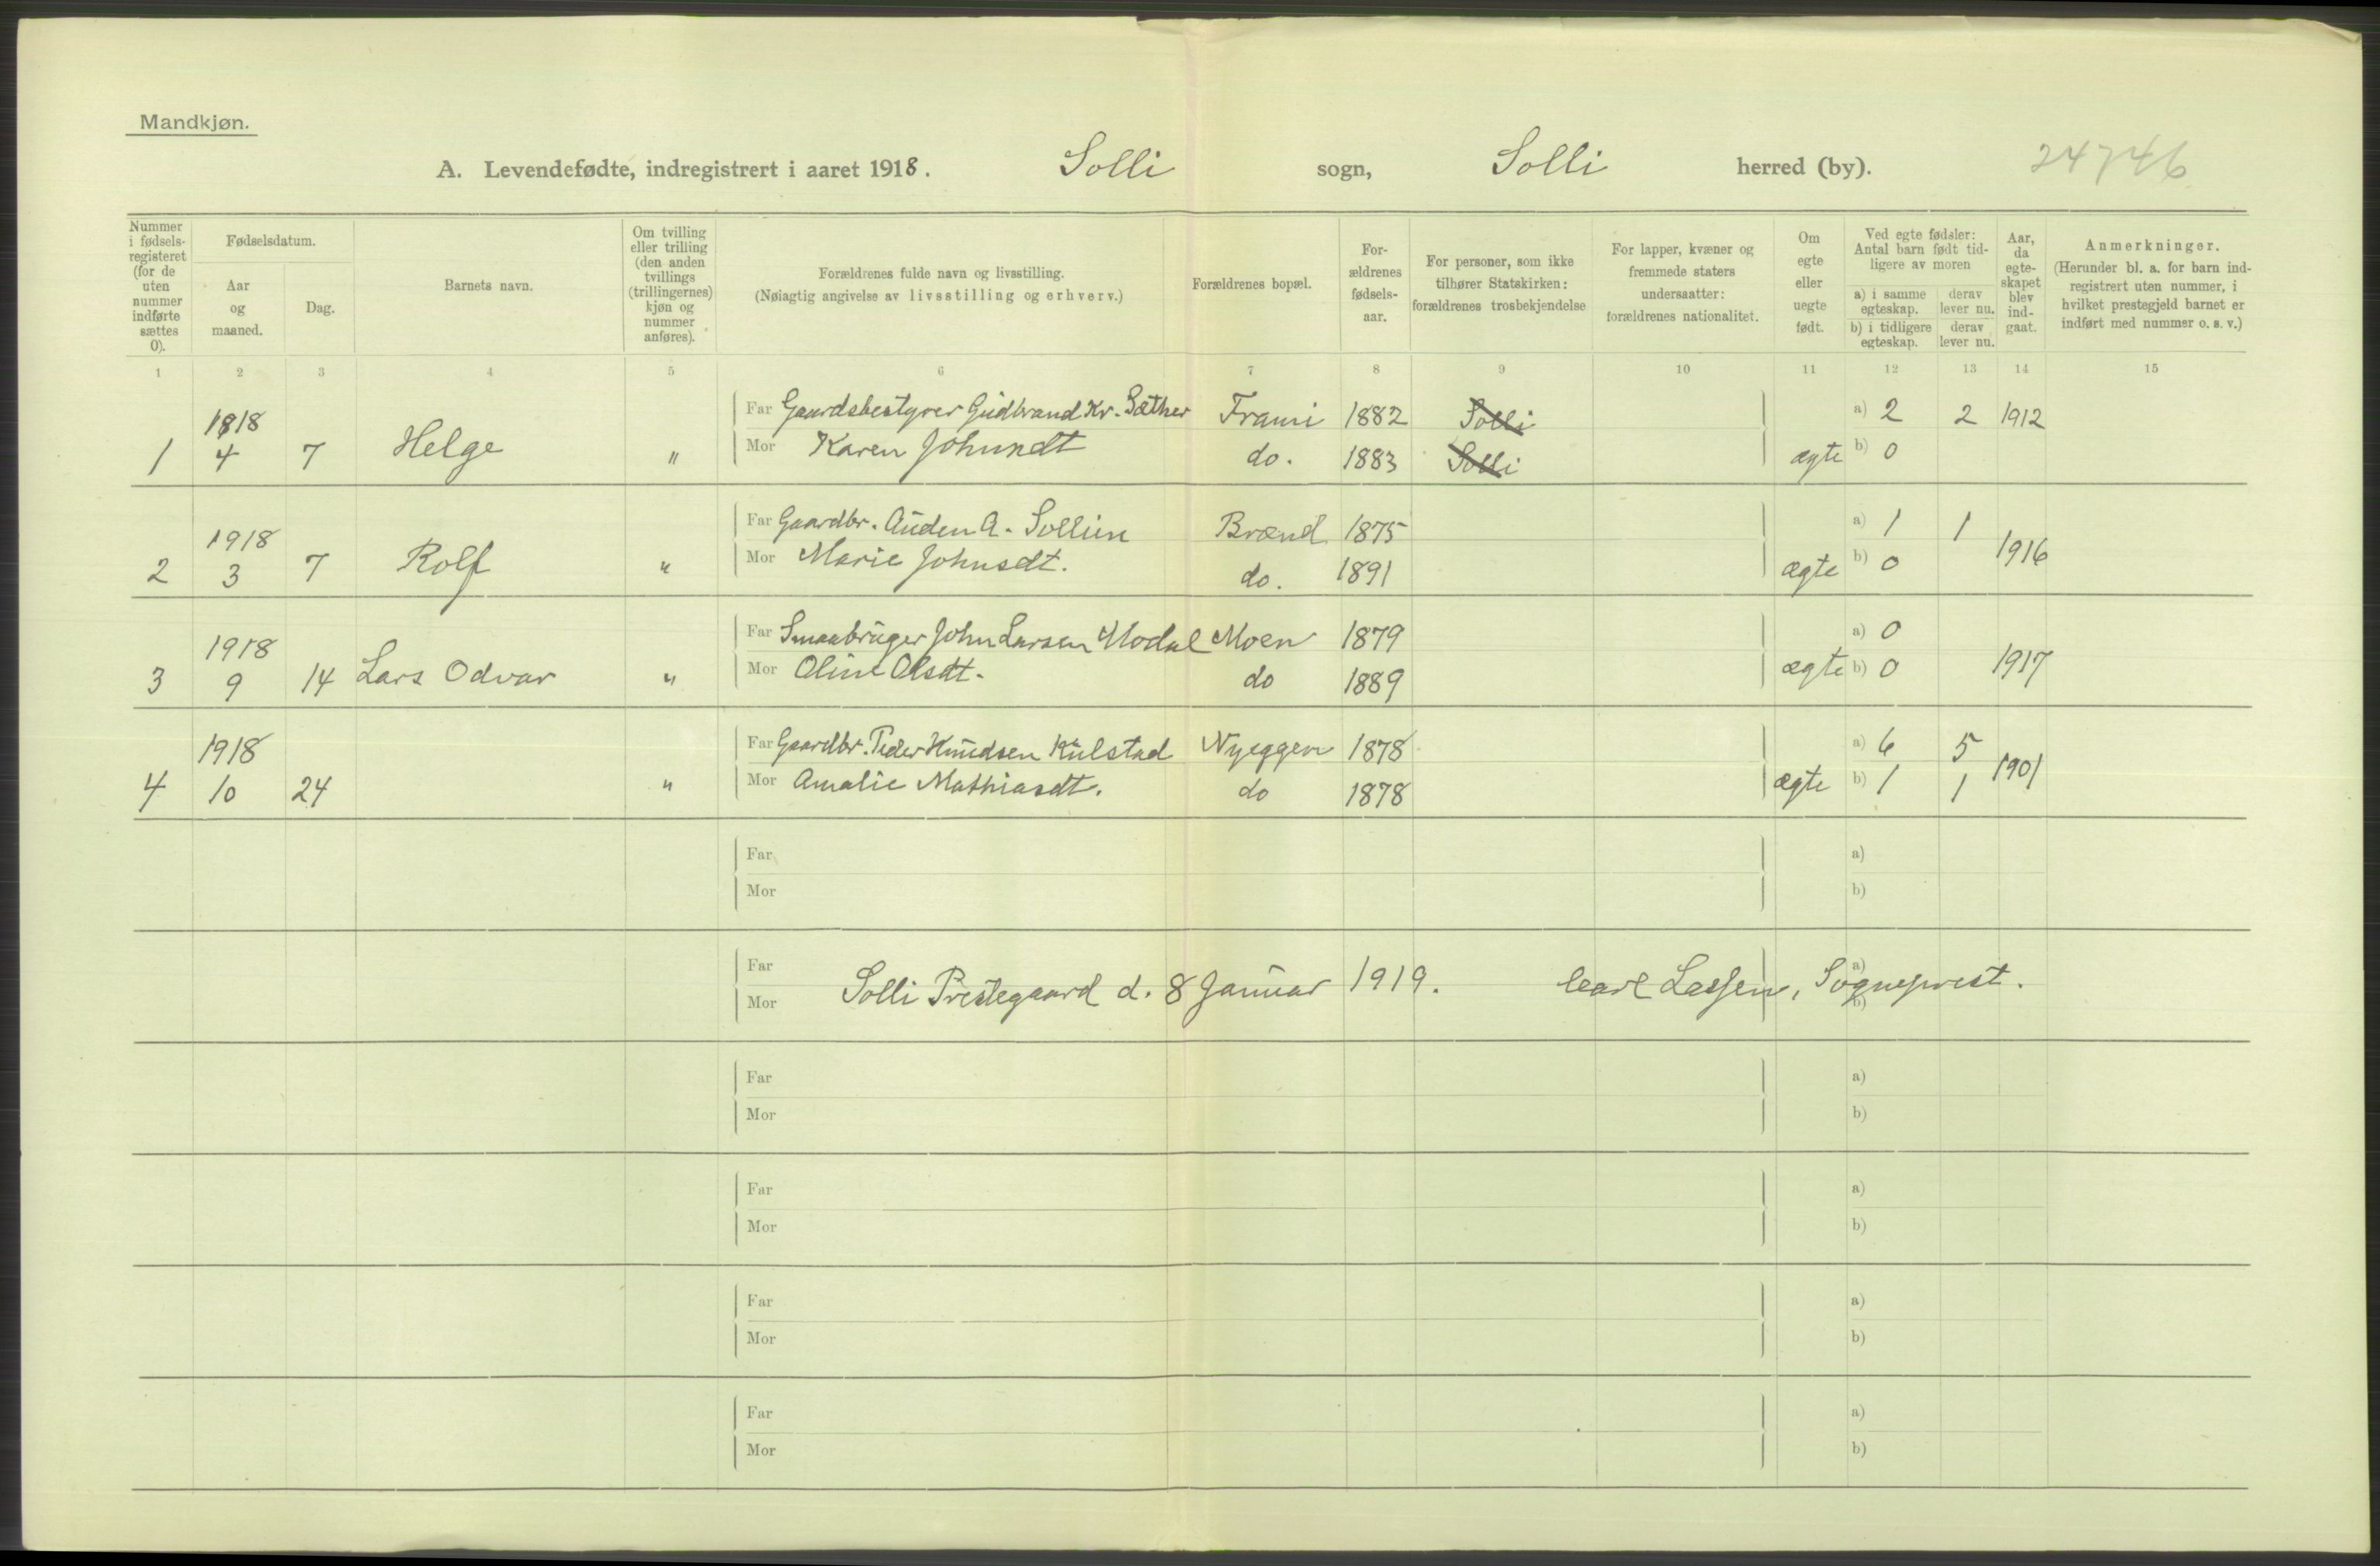 Mandkjøn.
A. Levendefødte, indregistrert i aaret 1918. Solli sogn, Solli herred (by). 24746
Nummer i fødsels-registeret (for de uten nummer indførte sættes 0).
Fødselsdatum.
Aar og maaned.
Dag.
Barnets navn.
Om tvilling eller trilling (den anden tvillings (trillingernes) kjøn og nummer anføres).
Forældrenes fulde navn og livsstilling.
(Nøiagtig angivelse av livsstilling og erhverv.)
Forældrenes bopæl.
For-ældrenes fødsels-aar.
For personer, som ikke tilhører Statskirken: forældrenes trosbekjendelse
For lapper, kvæner og fremmede staters undersaatter: forældrenes nationalitet.
Om egte eller uegte født.
Ved egte fødsler: Antal barn født tid-ligere av moren
a) i samme egteskap. derav lever nu.
b) i tidligere egteskap. derav lever nu.
Aar, da egte-skapet blev ind-gaat.
Anmerkninger.
(Herunder bl. a. for barn ind-registrert uten nummer, i hvilket prestegjeld barnet er indført med nummer o. s. v.)
1 2 3 4 5 6 7 8 9 10 11 12 13 14 15
1918 Far Gaardsbestyrer Gudbrand Kr. Sæther Frami 1882 Solli a) 2 2 1912
1 4 7 Helge " Mor Karen Johnsdt do. 1883 Solli ægte b) 0
1918 Far Gaardbr. Auden A. Sollien Brænd 1875 a) 1 1 1916
2 3 7 Rolf " Mor Marie Johnsdt. do. 1891 ægte b) 0
1918 Far Smaabruger John Larsen Modal Moen 1879 a) 0
3 9 14 Lars Odvar " Mor Oline Olsdt. do 1889 ægte b) 0 1917
1918 Far Gaardbr. Peder Knudsen Kulstad Nyeggen 1878 a) 6 5 1901
4 10 24 " Mor Amalie Mathiasdt. do 1878 ægte b) 1 1
Far a)
Mor b)
Far a)
Solli Prestegaard d. 8 Januar 1919. Carl Lassen, Sogneprest.
Mor b)
Far a)
Mor b)
Far a)
Mor b)
Far a)
Mor b)
Far a)
Mor b)